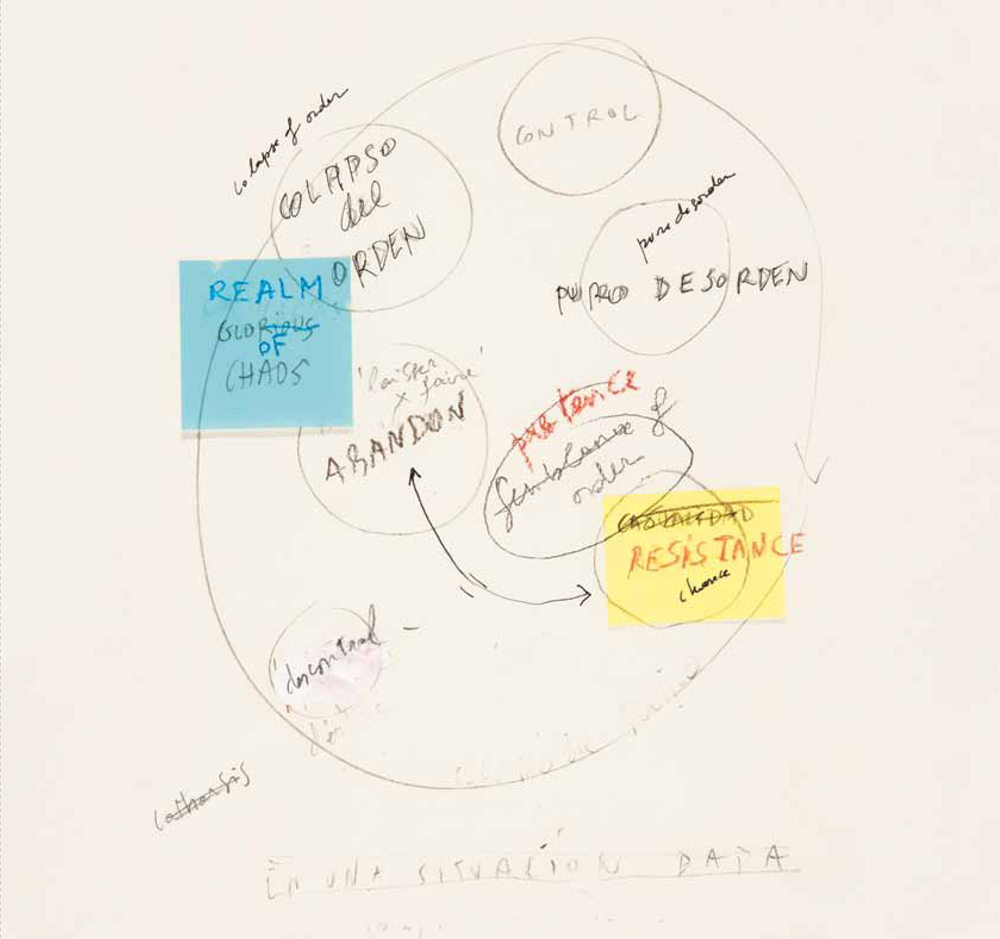 CONTROL
colapse of order
COLAPSO
del
ORDEN
pure desorden
PURO DESORDEN
REALM
GLORIOUS
OF
CHAOS
'laisser
faire'
ABANDON
pretence
semblance of
order
CASUALIDAD
RESISTANCE
chance
descontrol
catharsis
EN UNA SITUACIÓN DADA